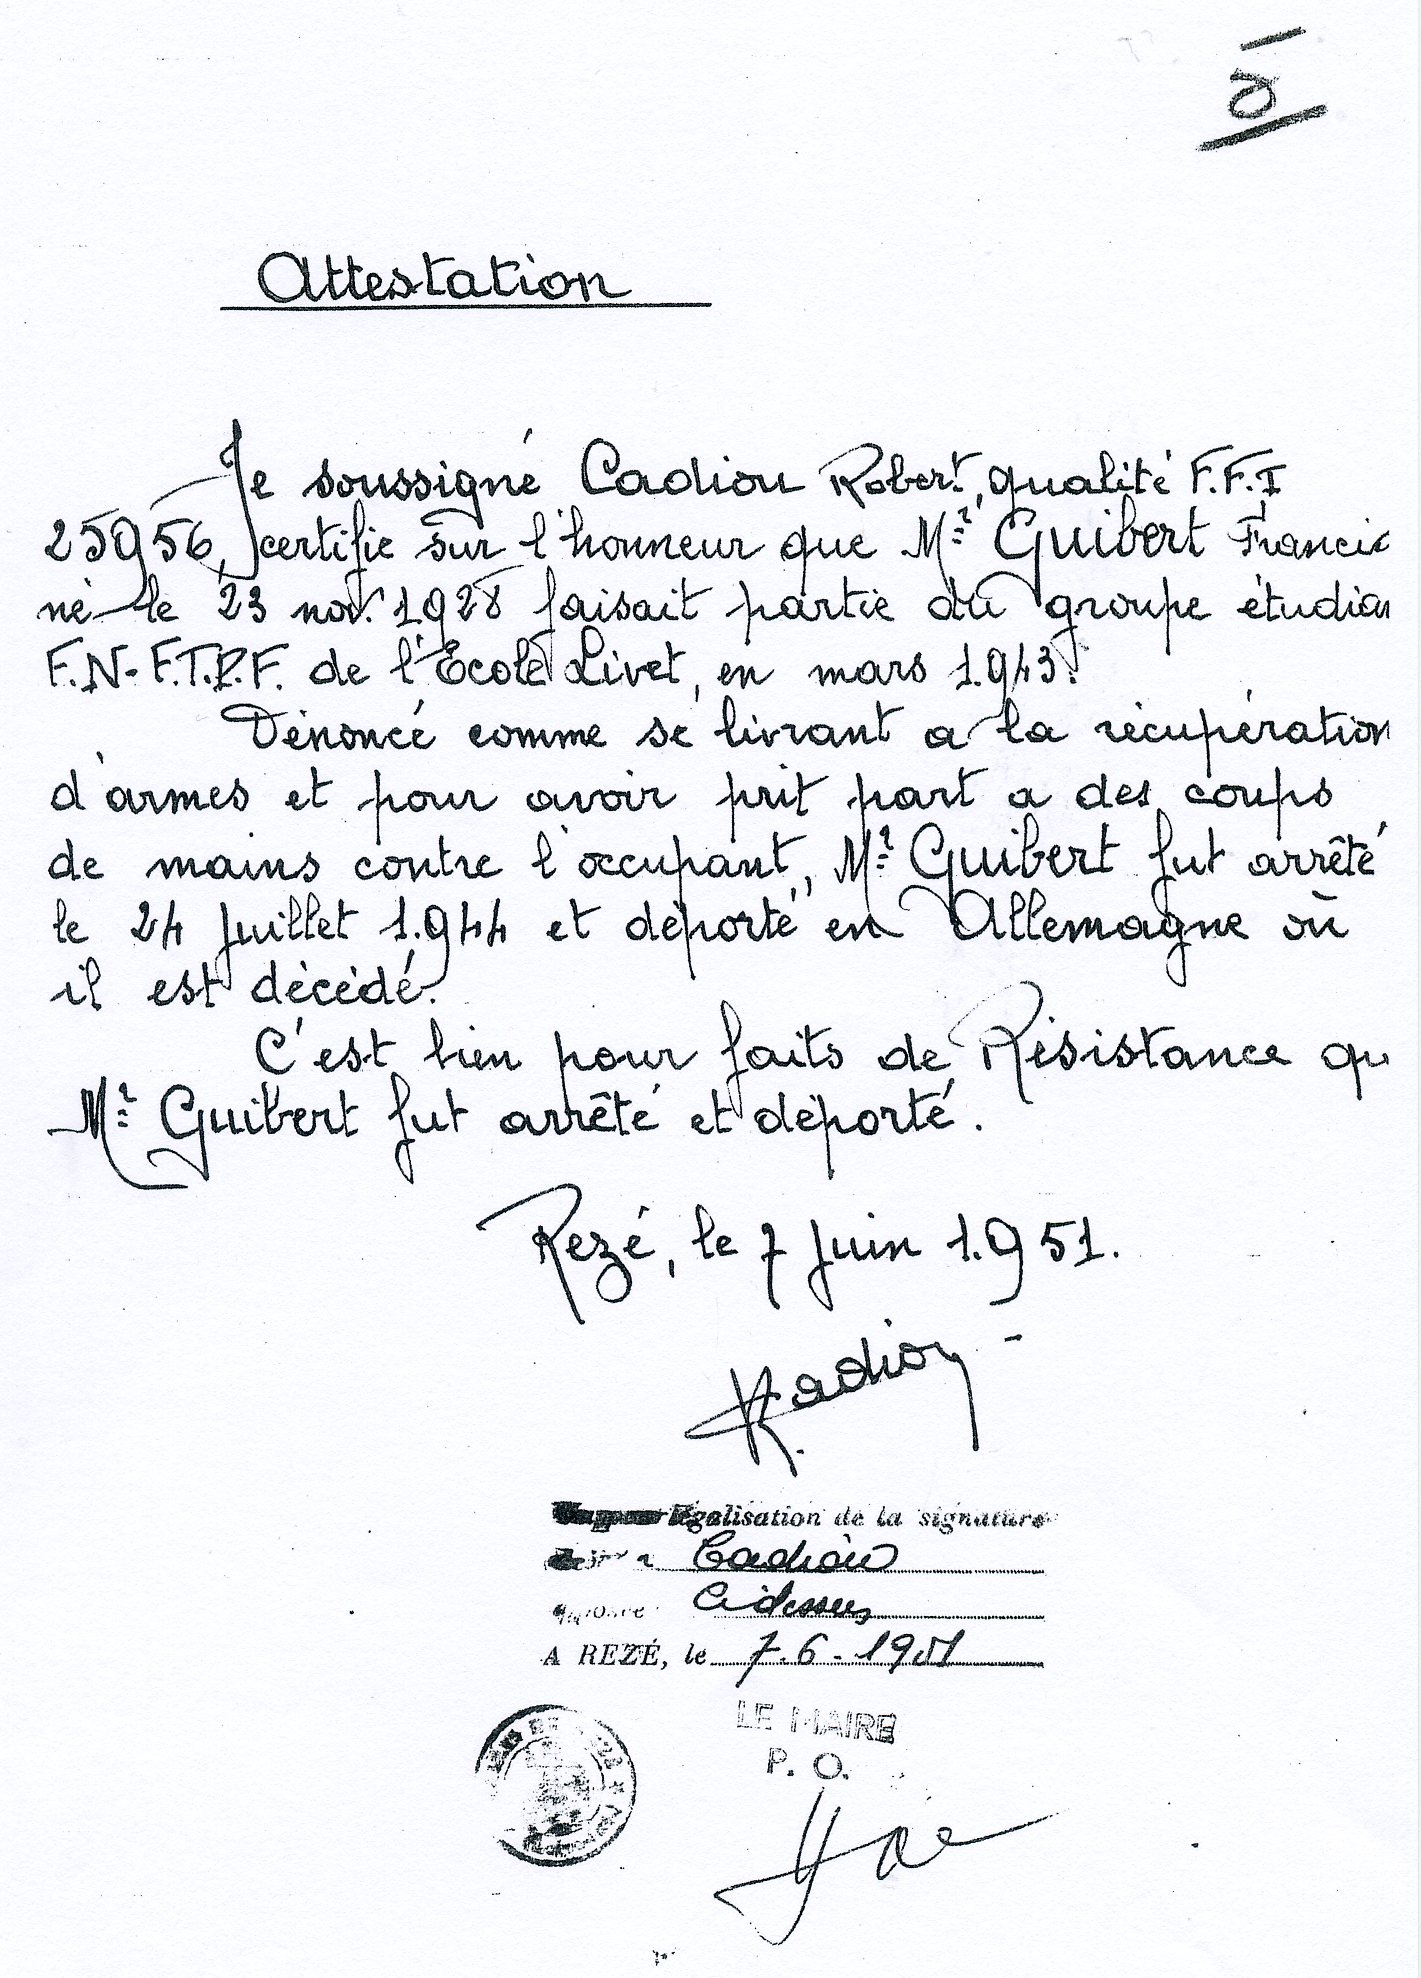 Attestation
Je soussigné Cadiou Robert, qualité F.F.I
25956, certifie sur l'honneur que Mr Guibert Francis
né le 23 nov. 1928 faisait partie du groupe étudian
F.N-F.T.P.F. de l'Ecole Livet, en mars 1.943.
Dénoncé comme se livrant a la récupération
d'armes et pour avoir prit part a des coups
de mains contre l'occupant, Mr Guibert fut arrêté
le 24 juillet 1.944 et déporté en Allemagne où
il est décédé.
C'est bien pour faits de Résistance qu
Mr Guibert fut arrêté et déporté.
Rezé, le 7 juin 1.951.
R. Cadiou
légalisation de la signature
Cadiou
Ci dessus
A REZÉ, le 7-6-1951
LE MAIRE
P. O.